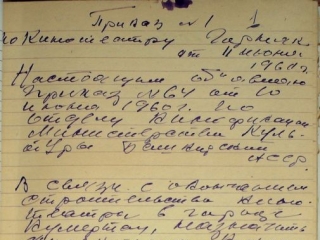 Приказ № 1 1
по Кинотеатру
от 11 июня
1960 г.
Настоящим объявляю
приказ № 64 от 10
июня 1960 г. по
отделу Кинофикации
Министерства Куль-
туры Башкирской
АССР.
В связи с окончанием
строительства кино-
театра в городе
Кумертау, назначить